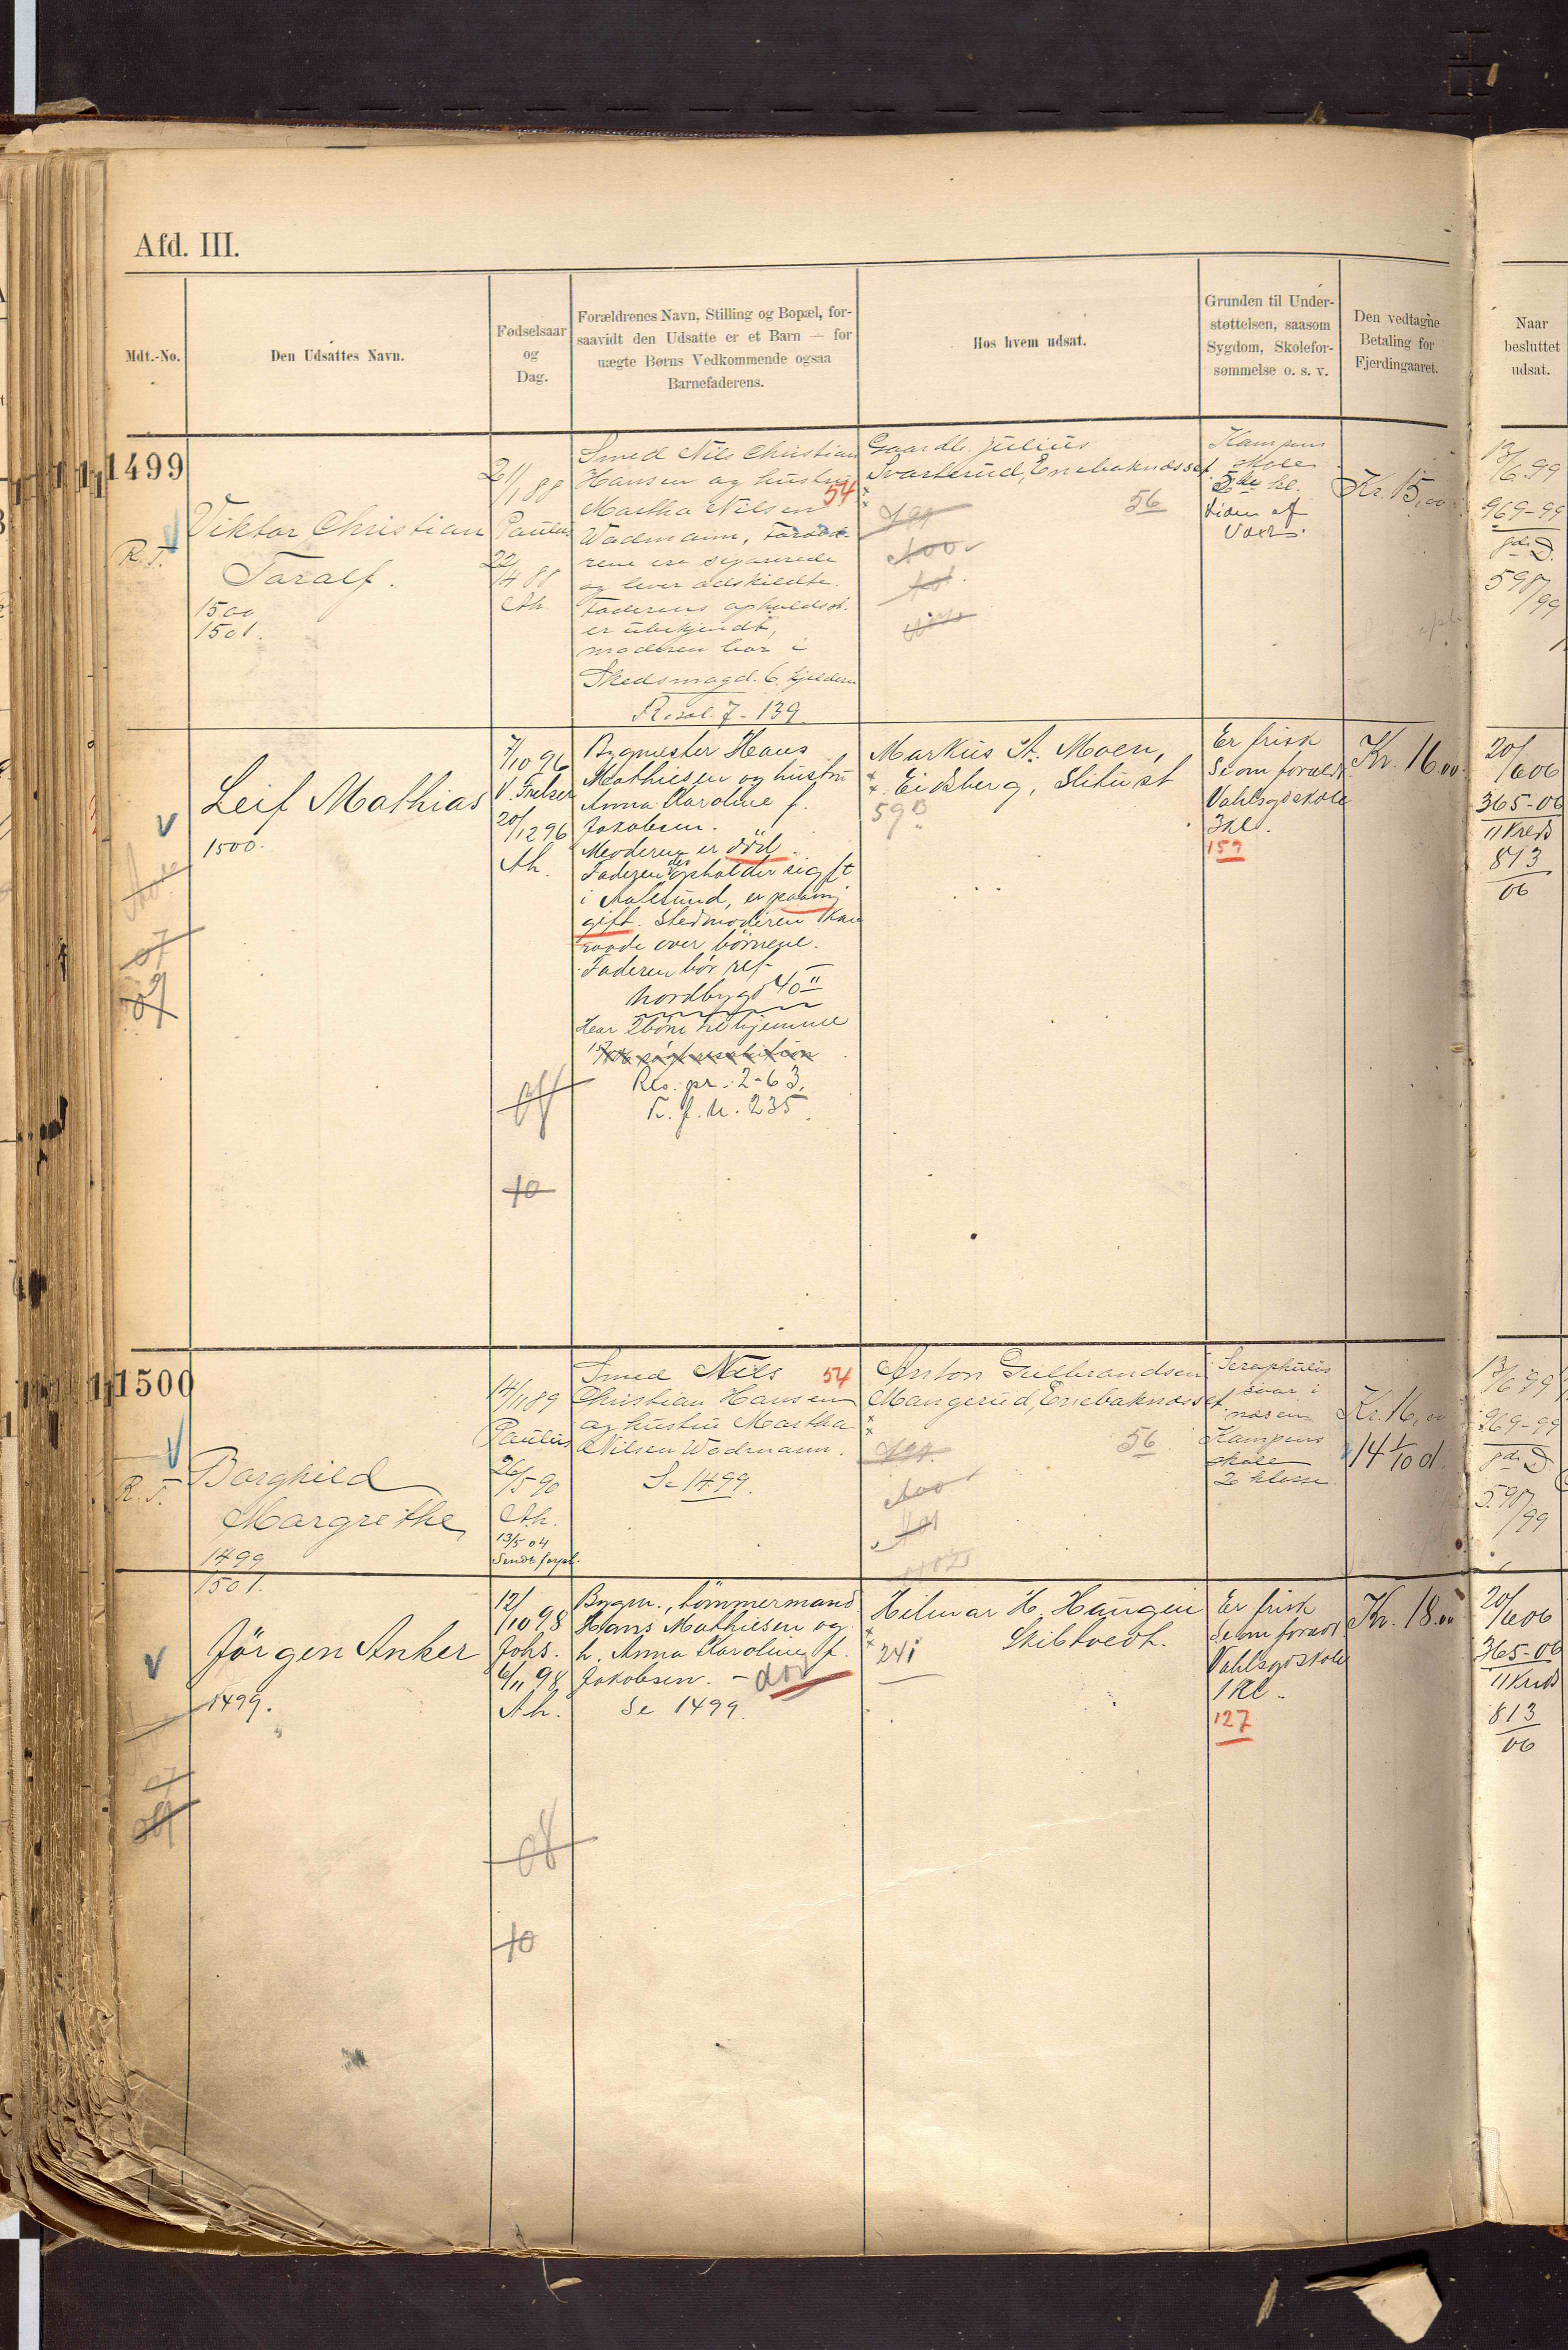 Afd. III.
Mdt.-No.
Den Udsattes Navn.
Fødselsaar
og
Dag.
Forældrenes Navn, Stilling og Bopæl, for-
saavidt den Udsatte er et Barn — for
uægte Børns Vedkommende ogsaa
Barnefaderens.
Hos hvem udsat.
Grunden til Under-
støttelsen, saasom
Sygdom, Skolefor-
sømmelse o. s. v.
Den vedtagne
Betaling for
Fjerdingaaret.
Naar
besluttet
udsat.
1499
R. T.
Viktor Christian
Taralf.
1500
1501.
21/1 88
Paulus
22/4 88
Ah.
Smed Nils Christian
Hansen og hustru
Martha Nilsen 54
Wadmann,
rene ere separerede
og lever adskildte.
Faderens opholdsst.
er ubekjendt,
moderen bor i
Skedsmogd. 6. kjelderen
Resol. 7 - 139
Gaardb. Julius
Svarterud, Enebaknæsset.
56
Kampens
skole
5te kl.
Kr. 15,00
13/6.99
969-99
598/99
Leif Mathias
1500.
7/10 96
V. Frelser
20/12 96
Ah.
Bygmester Hans
Mathiesen og hustru
Anna Karoline f.
Jakobsen.
Moderen er död.
Faderen opholder sig ft
i Aalesund, er paany
gift. Stedmoderen kan
raade over börnene.
Faderen bör ref.
Nordbygd 40 II
Har 2 börn hjemme
Res. pr. 2-63.
F. f. U. 235.
08
10
07
09
Markus A. Moen,
Eidsberg, Slitust
59 B
Er frisk
Se om foræld.
Vahlsgdskole
3 kl.
159
Kr. 16.00
20/6 06
365-06
11 Kreds
813
06
1500
R. T.
Borghild
Margrethe
1499
1501.
14/11 89
Paulus
26/5 90
Ah.
13/5 04
Sendt forpl.
Smed Nils 54
Christian Hansen
og hustru Martha
Nilsen Wadmann.
Se 1499.
Anton Gulbrandsen
Mangerud, Enebaknæsset.
56
saar i
næsen
Kampens
skole
2 klasse.
Kr. 16,00
14 1/10 d.
13/6 99
969-99
598/99
Jörgen Anker
1499.
12/10 98
Johs.
6/11 98
Ah.
Bygm., tömmermand
Hans Mathiesen og
h. Anna Karoline f.
Jakobsen. - död
Se 1499.
08
10
07
Hilmar H. Haugen
Skibtvedt.
241
Er frisk
Se om foræld
Vahlsgdskole
1 kl.
127
Kr. 18.00
20/6 06
365-06
11 Kreds
813
06